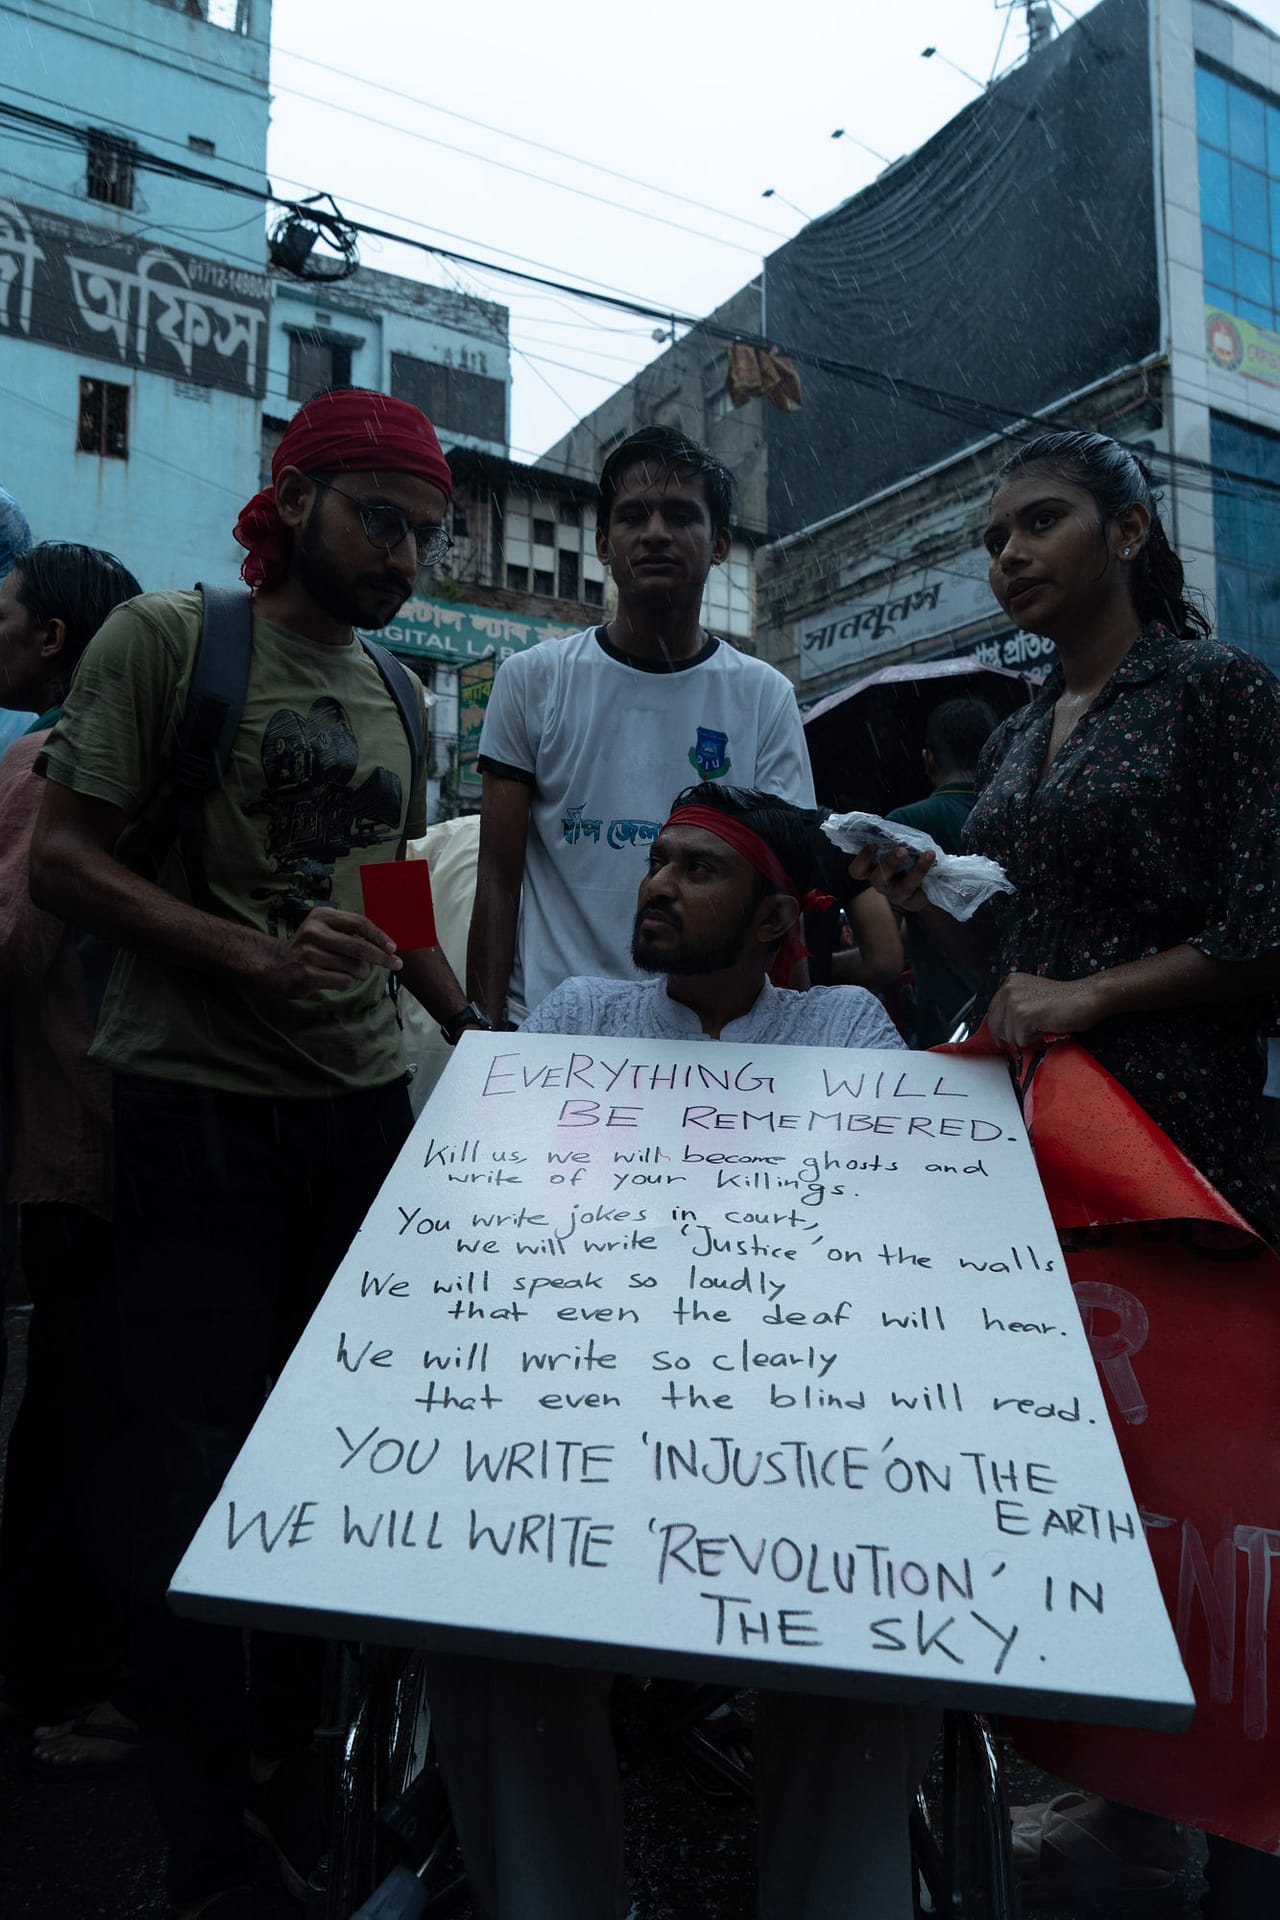 অফিস
01712-149804
DIGITAL LAB
সানমুনস
DIU
দ্বীপ জেলা
EVERYTHING WILL
BE REMEMBERED.
Kill us, we will become ghosts and
write of your killings.
You write jokes in court,
we will write 'Justice' on the walls
We will speak so loudly
that even the deaf will hear.
We will write so clearly
that even the blind will read.
YOU WRITE 'INJUSTICE' ON THE
EARTH
WE WILL WRITE 'REVOLUTION' IN
THE SKY.